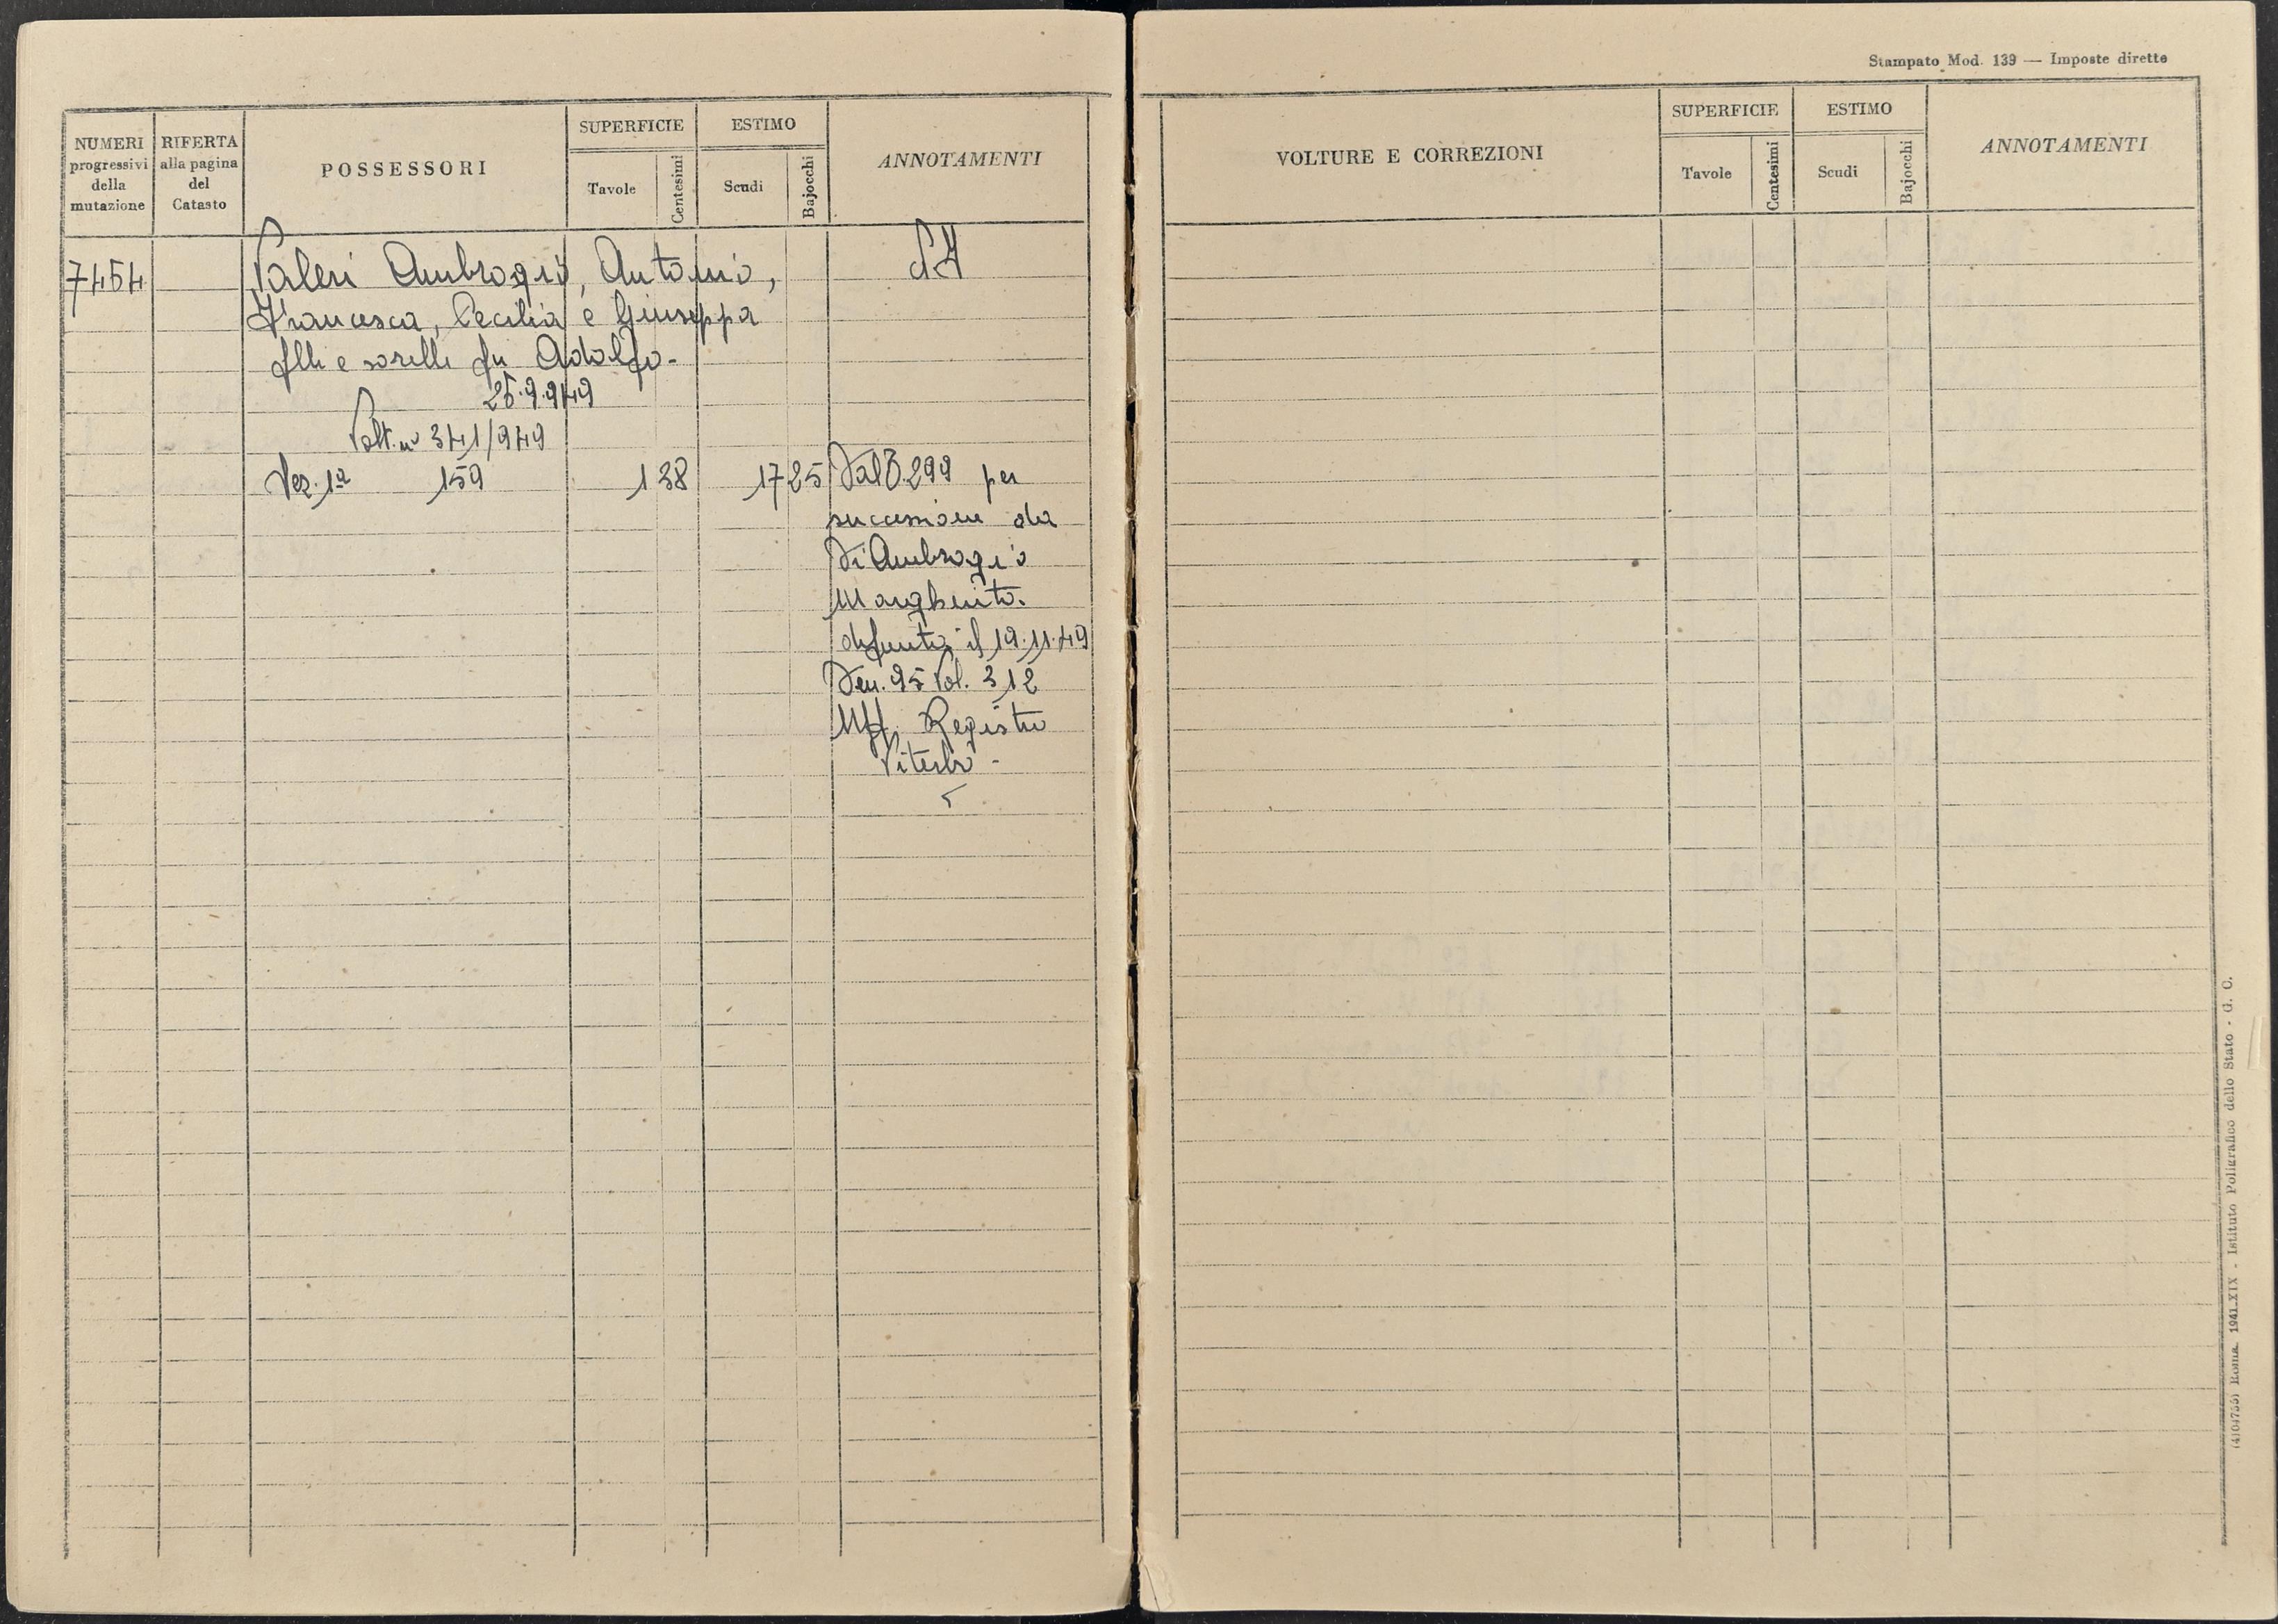 Stampato Mod. 139 — Imposte dirette
NUMERI progressivi della mutazione
RIFERTA alla pagina del Catasto
POSSESSORI
SUPERFICIE
Tavole
Centesimi
ESTIMO
Scudi
Bajocchi
ANNOTAMENTI
7454
Valeri Ambrogio, Antonio,
Francesca, Cecilia e Giuseppa
flli e sorelle fu Adolfo-
25.9.949
Volt. n° 341/949
Vez. 1ª 159 1 38 17 25 Dal 299 per
successione da
Di Ambrogio
Margherita.
defunta il 19.11.49
Den. 95 Vol. 312
Uff. Registro
Viterbo -
VOLTURE E CORREZIONI
SUPERFICIE
Tavole
Centesimi
ESTIMO
Scudi
Bajocchi
ANNOTAMENTI
Roma, 1941-XIX - Istituto Poligrafico dello Stato - G. C.